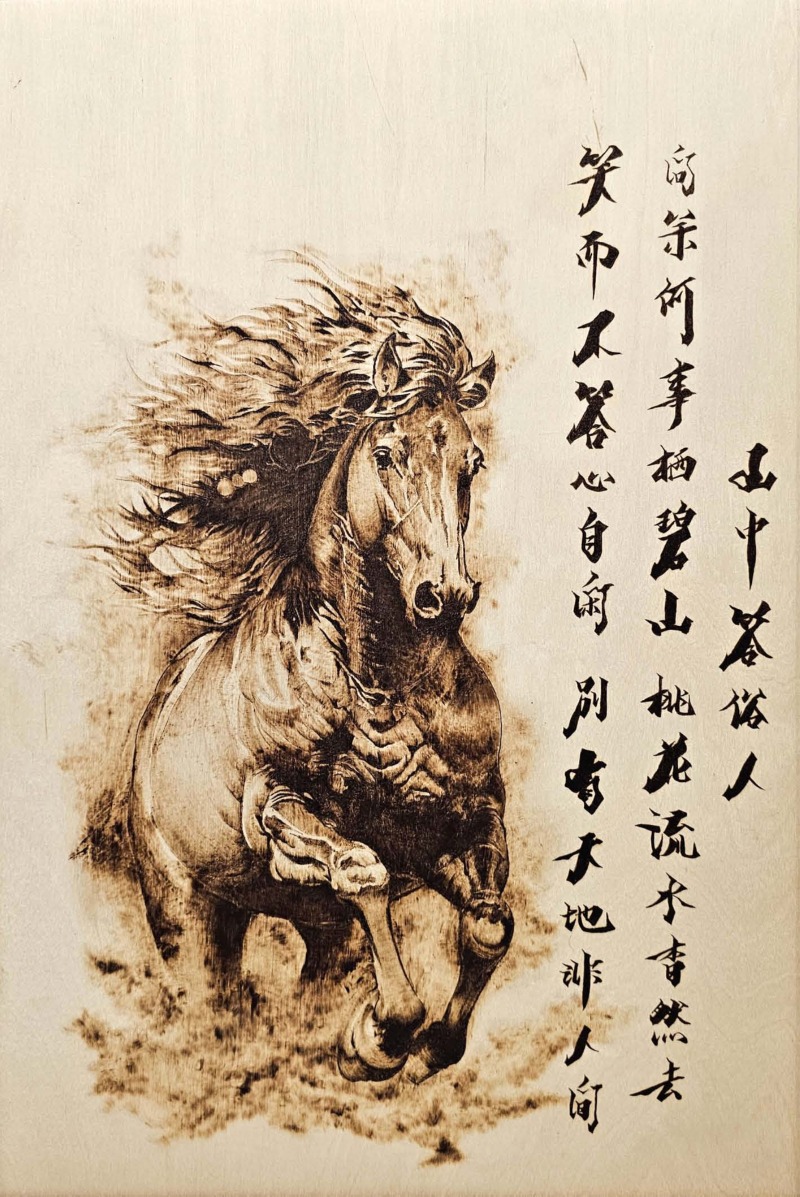 山中答俗人
问余何事栖碧山 桃花流水杳然去
笑而不答心自闲 别有天地非人间